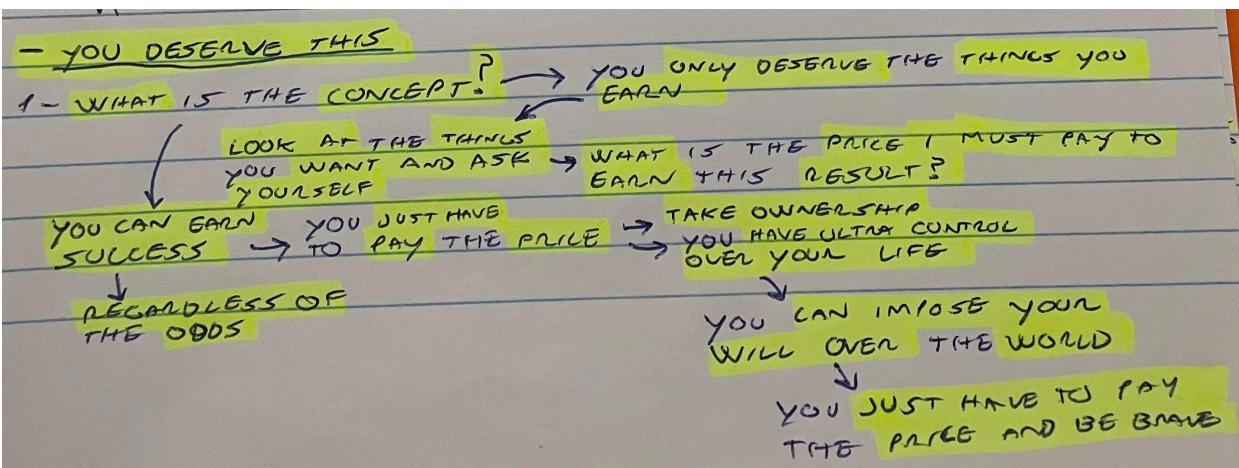 - YOU DESERVE THIS
1- WHAT IS THE CONCEPT? → YOU ONLY DESERVE THE THINGS YOU
EARN
LOOK AT THE THINGS
YOU WANT AND ASK
YOURSELF
→ WHAT IS THE PRICE I MUST PAY TO
EARN THIS RESULT?
YOU CAN EARN
SUCCESS
→ YOU JUST HAVE
TO PAY THE PRICE
→ TAKE OWNERSHIP
→ YOU HAVE ULTRA CONTROL
OVER YOUR LIFE
↓
REGARDLESS OF
THE ODDS
YOU CAN IMPOSE YOUR
WILL OVER THE WORLD
YOU JUST HAVE TO PAY
THE PRICE AND BE BRAVE